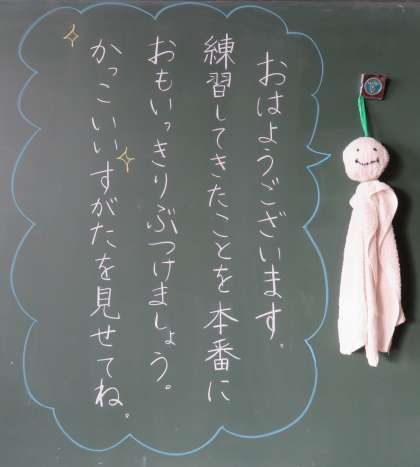 おはようございます。
練習してきたことを本番に
おもいっきりぶつけましょう。
かっこいいすがたを見せてね。